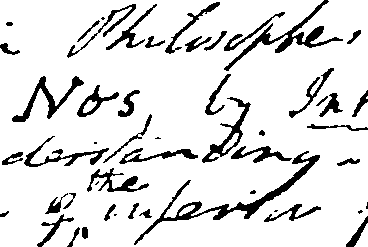 Philosophers
Nos, by Int
derstanding
the
of inferior